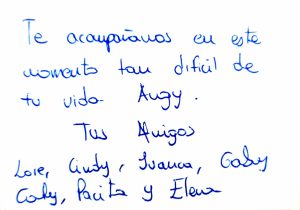 Te acompañamos en este
momento tan dificil de
tu vida. Angy.
Tus Amigos
Lore, Cindy, Ivanna, Gaby
Caty, Pacita y Elena